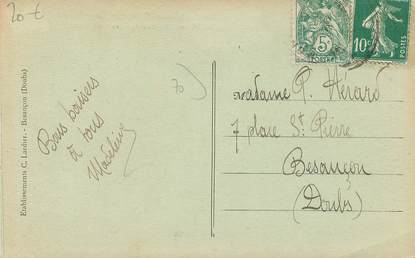 20 €
Etablissements C. Lardier. - Besançon (Doubs)
Bons baisers
à tous
Madeleine
5c
10c
POSTES
Madame P. Hérard
7 place St Pierre
Besançon
(Doubs)